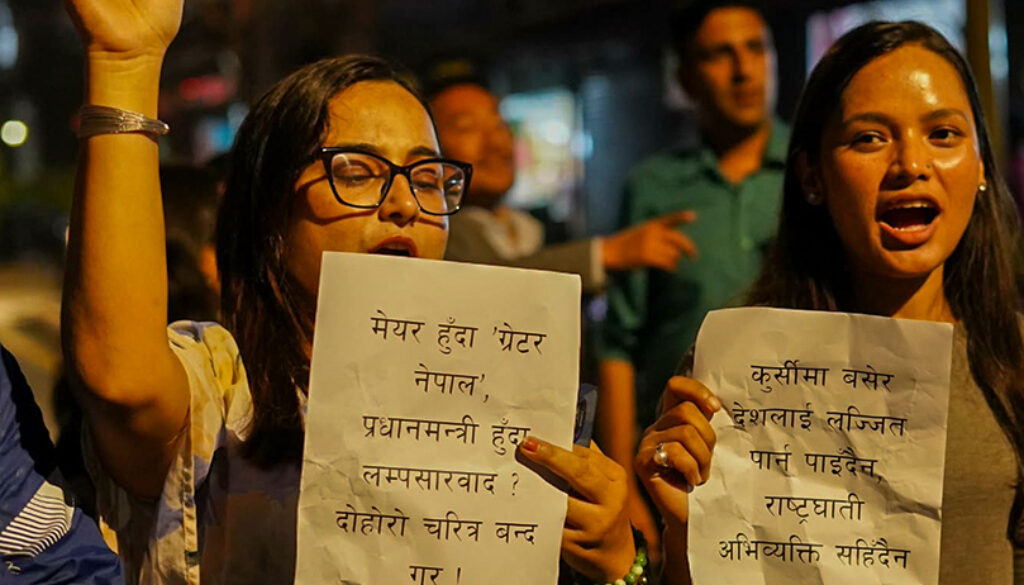 मेयर हुँदा 'ग्रेटर
नेपाल',
प्रधानमन्त्री हुँदा
लम्पसारवाद ?
दोहोरो चरित्र बन्द
गर !
कुर्सीमा बसेर
देशलाई लज्जित
पार्न पाइँदैन,
राष्ट्रघाती
अभिव्यक्ति सहिँदैन